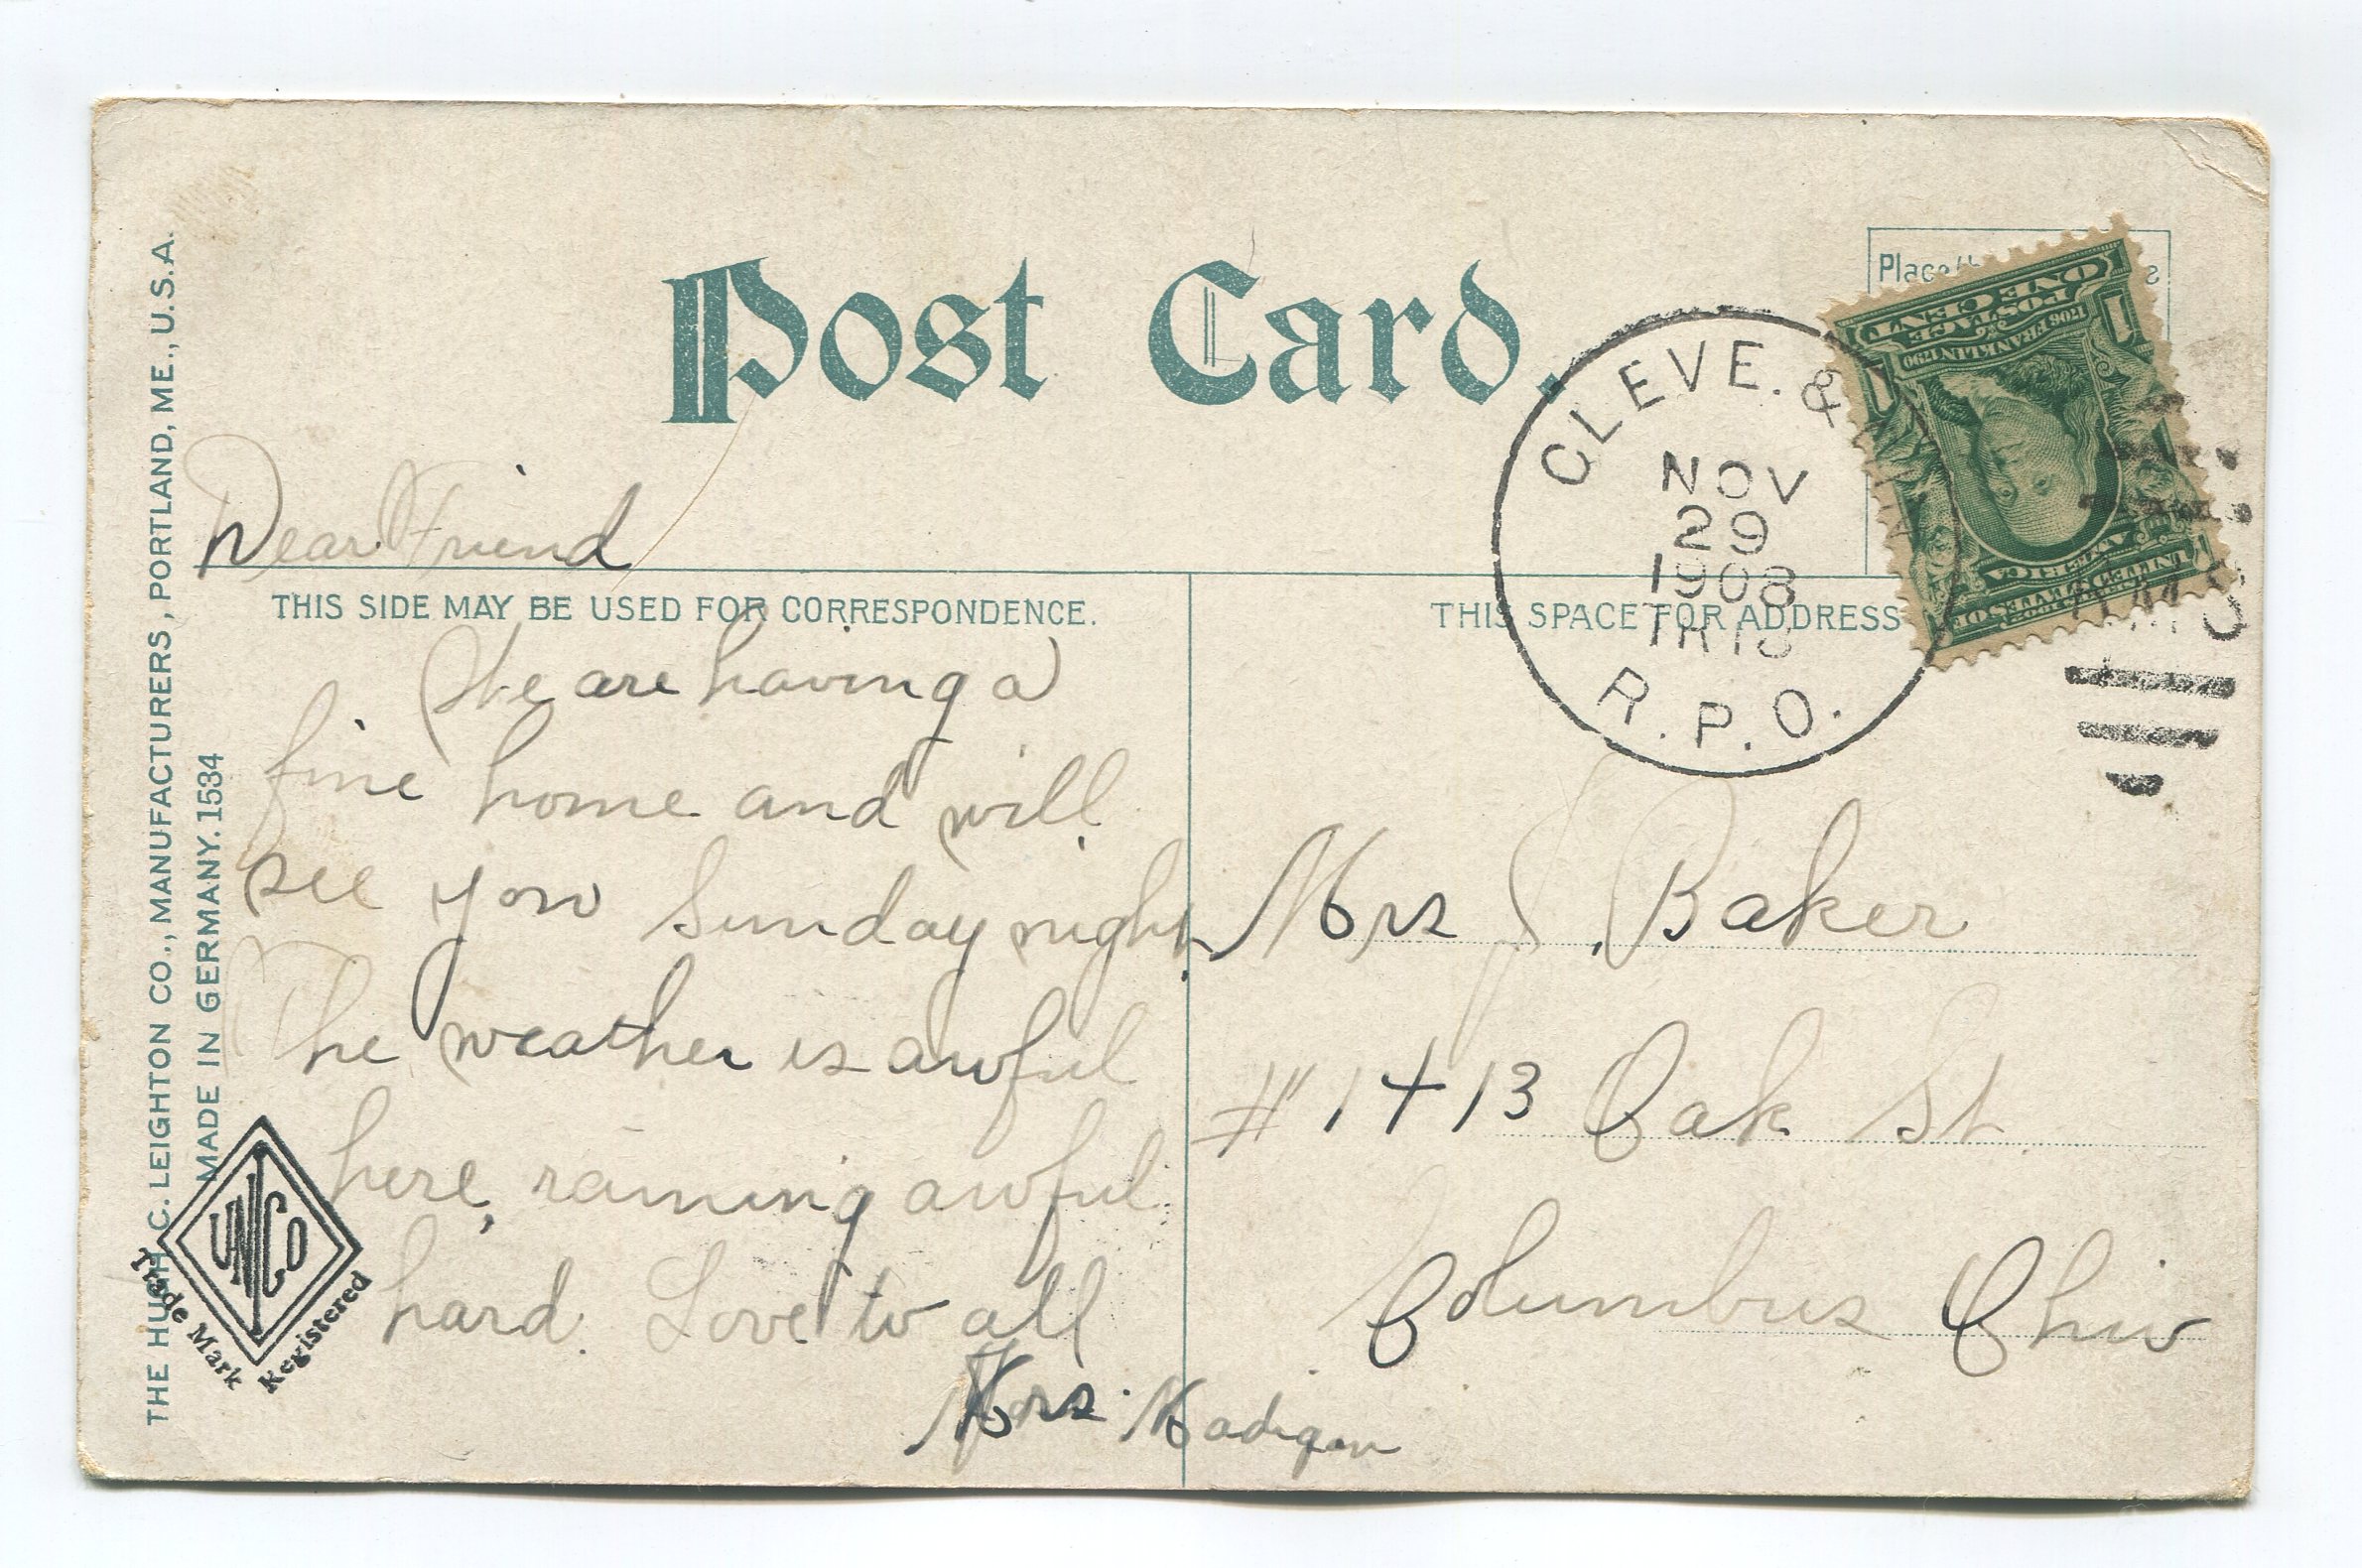 Post Card.
Place
CLEVE. &
NOV
29
1908
R.P.O.
ONE CENT
POSTAGE
1706 FRANKLIN 1790
UNITED STATES OF
AMERICA
Dear Friend
THIS SIDE MAY BE USED FOR CORRESPONDENCE.
We are having a
fine home and will
see you Sunday night
The weather is awful
here, raining awful
hard. Love to all
Mrs. Madigan
THIS SPACE FOR ADDRESS
Mrs J. Baker
#1413 Oak St.
Columbus Ohio
THE HUGH C. LEIGHTON CO., MANUFACTURERS, PORTLAND, ME., U.S.A.
MADE IN GERMANY. 1534
UNCo
Trade Mark Registered